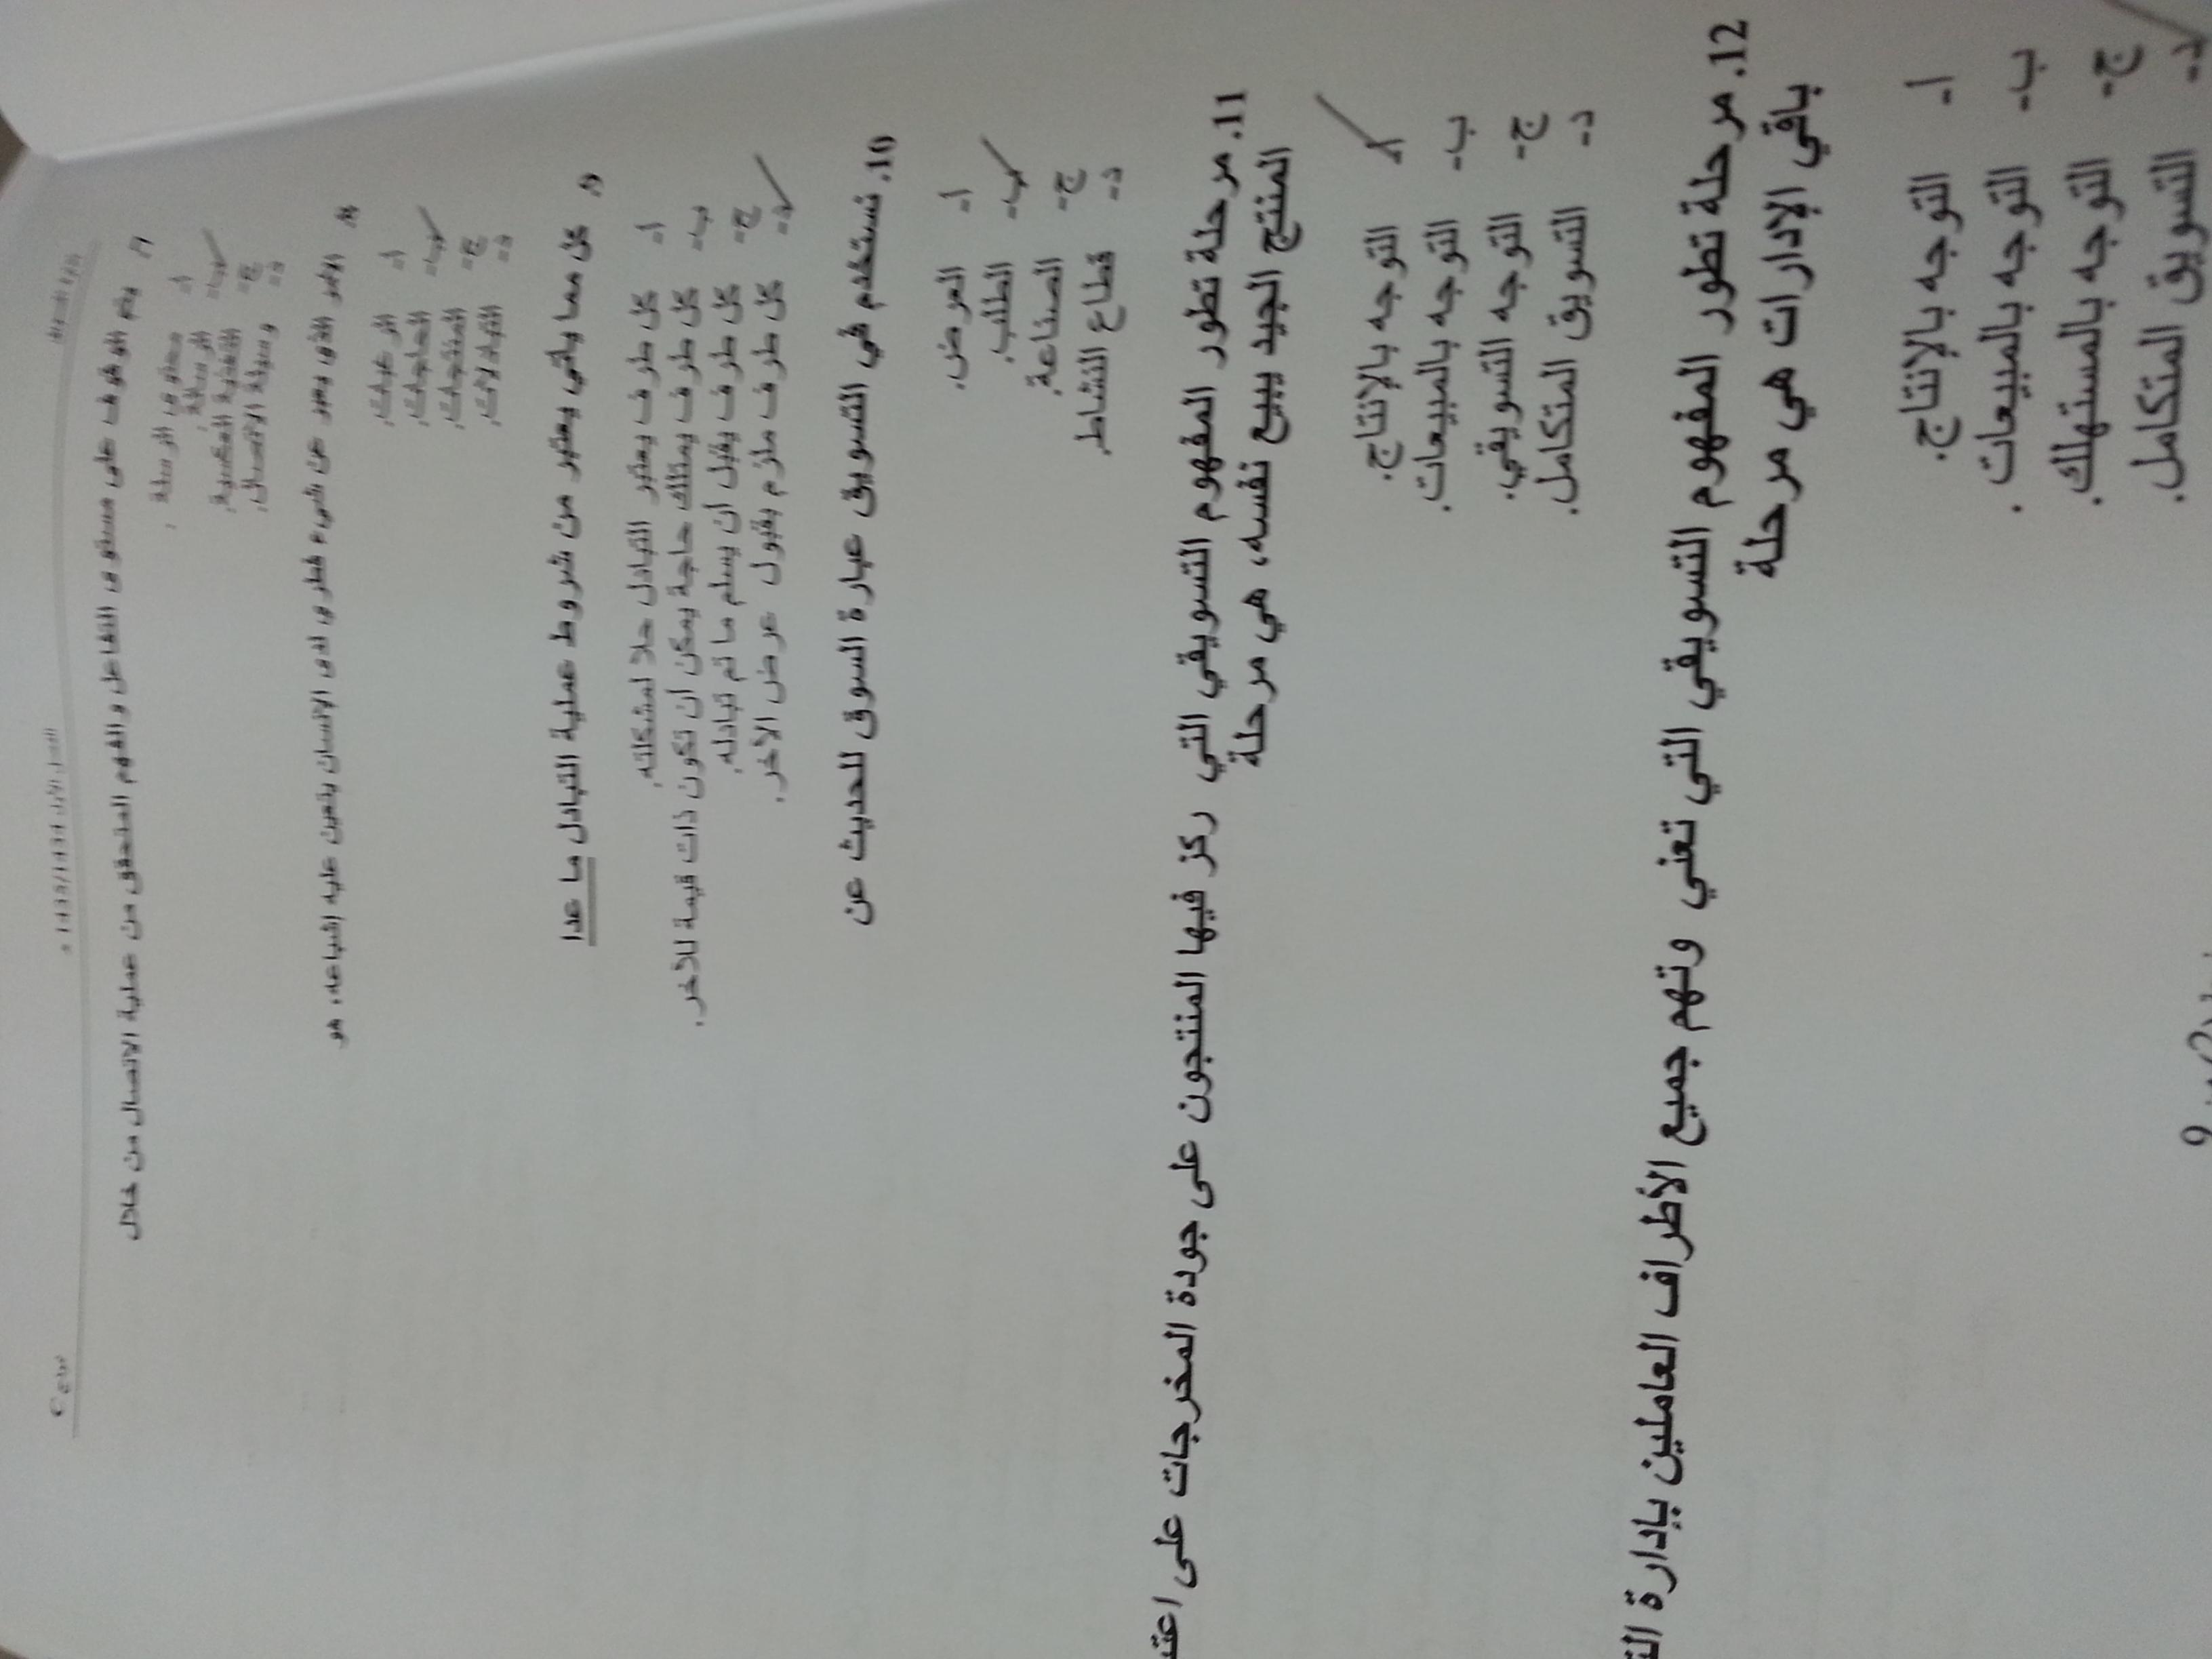 7. يتم الوقوف على مستوى التفاعل والفهم المتحقق من عملية الاتصال من خلال
أ- محتوى الرسالة.
ب- الرسالة.
ج- التغذية العكسية.
د- وسيلة الاتصال.
8. الأمر الذي يعبر عن شيء فطري لدى الإنسان يتعين عليه إشباعه، هو
أ- الرغبات.
ب- الحاجات.
ج- المنتجات.
د- التبادلات.
9. كل مما يأتي يعتبر من شروط عملية التبادل ما عدا
أ- كل طرف يعتبر التبادل حلا لمشكلته.
ب- كل طرف يمتلك حاجة يمكن أن تكون ذات قيمة للآخر.
ج- كل طرف يقبل أن يسلم ما تم تبادله.
د- كل طرف ملزم بقبول عرض الآخر.
10. نستخدم في التسويق عبارة السوق للحديث عن
أ- العرض.
ب- الطلب.
ج- الصناعة.
د- قطاع النشاط.
11. مرحلة تطور المفهوم التسويقي التي ركز فيها المنتجون على جودة المخرجات على
المنتج الجيد يبيع نفسه، هي مرحلة
أ- التوجه بالإنتاج.
ب- التوجه بالمبيعات.
ج- التوجه التسويقي.
د- التسويق المتكامل.
12. مرحلة تطور المفهوم التسويقي التي تعني وتهم جميع الأطراف العاملين بإدارة
باقي الإدارات هي مرحلة
أ- التوجه بالإنتاج.
ب- التوجه بالمبيعات.
ج- التوجه بالمستهلك.
د- التسويق المتكامل.